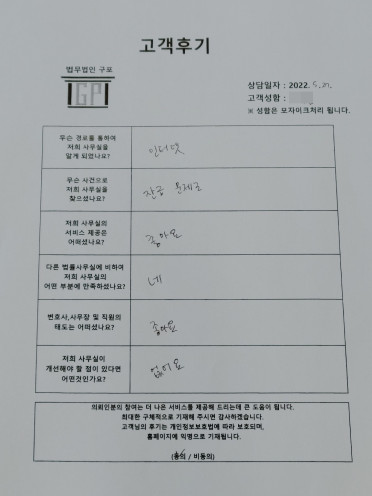 고객후기
법무법인 구포
GP
상담일자 : 2022. 5.
고객성함 :
※ 성함은 모자이크처리 됩니다.
무슨 경로를 통하여
저희 사무실을
알게 되었나요?
인터넷
무슨 사건으로
저희 사무실을
찾으셨나요?
잔금 문제로
저희 사무실의
서비스 제공은
어떠셨나요?
좋아요
다른 법률사무실에 비하여
저희 사무실의
어떤 부분에 만족하셨나요?
네
변호사,사무장 및 직원의
태도는 어떠셨나요?
좋아요
저희 사무실이
개선해야 할 점이 있다면
어떤것인가요?
없어요
의뢰인분의 참여는 더 나은 서비스를 제공해 드리는데 큰 도움이 됩니다.
최대한 구체적으로 기재해 주시면 감사하겠습니다.
고객님의 후기는 개인정보보호법에 따라 보호되며,
홈페이지에 익명으로 기재됩니다.
(동의 / 비동의)